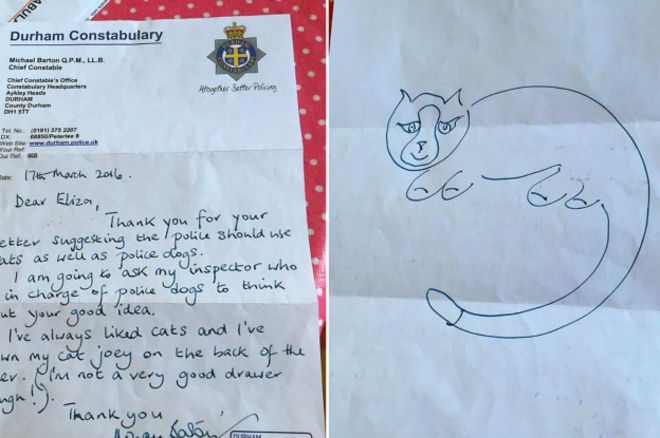 Durham Constabulary
Michael Barton Q.P.M., LL.B.
Chief Constable
Altogether Better Policing
Chief Constable's Office
Constabulary Headquarters
Aykley Heads
DURHAM
County Durham
DH1 5TT
Tel. No.: (0191) 375 2207
DX: 68850/Peterlee 8
Web Site: www.durham.police.uk
Your Ref:
Our Ref. MB
Date: 17th March 2016.
Dear Eliza,
Thank you for your
etter suggesting the police should use
ats as well as police dogs.
I am going to ask my inspector who
in charge of police dogs to think
ut your good idea.
I've always liked cats and I've
wn my cat joey on the back of the
er. (I'm not a very good drawer
ugh!).
Thank you
DURHAM